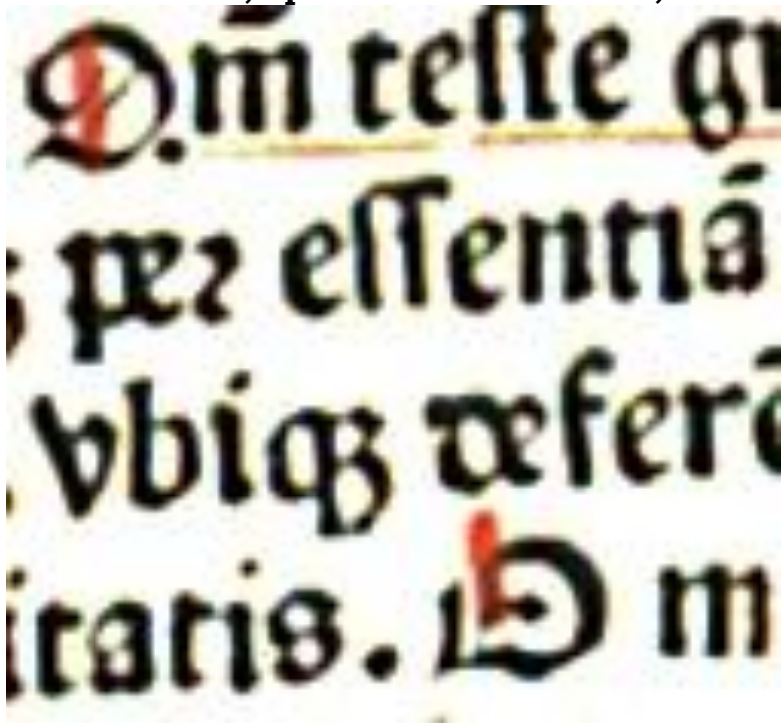 Q.m̄ teſte gr
per eſſentiā
vbiqꝫ deferē
itatis. O m